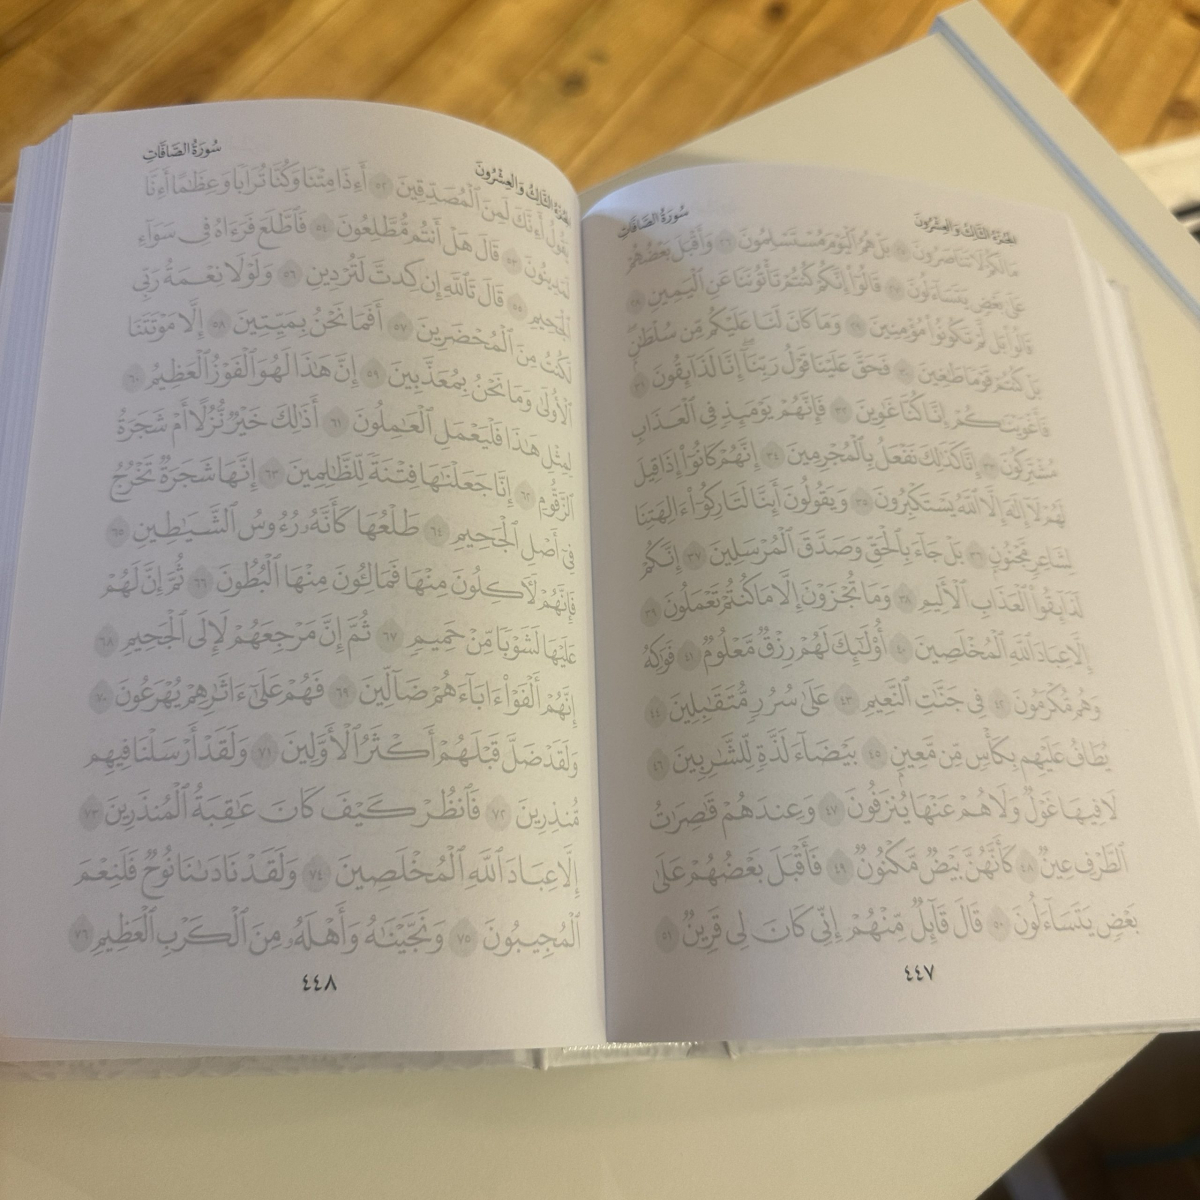 الجزء الثالث والعشرون
سورة الصافات
مَا لَكُمْ لَا تَنَاصَرُونَ ٢٥ بَلْ هُمُ ٱلْيَوْمَ مُسْتَسْلِمُونَ ٢٦ وَأَقْبَلَ بَعْضُهُمْ
عَلَىٰ بَعْضٍ يَتَسَآءَلُونَ ٢٧ قَالُوٓا۟ إِنَّكُمْ كُنتُمْ تَأْتُونَنَا عَنِ ٱلْيَمِينِ ٢٨
قَالُوا۟ بَل لَّمْ تَكُونُوا۟ مُؤْمِنِينَ ٢٩ وَمَا كَانَ لَنَا عَلَيْكُم مِّن سُلْطَٰنٍۭ
بَلْ كُنتُمْ قَوْمًا طَٰغِينَ ٣٠ فَحَقَّ عَلَيْنَا قَوْلُ رَبِّنَآ إِنَّا لَذَآئِقُونَ ٣١
فَأَغْوَيْنَٰكُمْ إِنَّا كُنَّا غَٰوِينَ ٣٢ فَإِنَّهُمْ يَوْمَئِذٍ فِى ٱلْعَذَابِ
مُشْتَرِكُونَ ٣٣ إِنَّا كَذَٰلِكَ نَفْعَلُ بِٱلْمُجْرِمِينَ ٣٤ إِنَّهُمْ كَانُوٓا۟ إِذَا قِيلَ
لَهُمْ لَآ إِلَٰهَ إِلَّا ٱللَّهُ يَسْتَكْبِرُونَ ٣٥ وَيَقُولُونَ أَئِنَّا لَتَارِكُوٓا۟ ءَالِهَتِنَا
لِشَاعِرٍ مَّجْنُونٍۭ ٣٦ بَلْ جَآءَ بِٱلْحَقِّ وَصَدَّقَ ٱلْمُرْسَلِينَ ٣٧ إِنَّكُمْ
لَذَآئِقُوا۟ ٱلْعَذَابِ ٱلْأَلِيمِ ٣٨ وَمَا تُجْزَوْنَ إِلَّا مَا كُنتُمْ تَعْمَلُونَ ٣٩
إِلَّا عِبَادَ ٱللَّهِ ٱلْمُخْلَصِينَ ٤٠ أُو۟لَٰٓئِكَ لَهُمْ رِزْقٌ مَّعْلُومٌ ٤١ فَوَٰكِهُ
وَهُم مُّكْرَمُونَ ٤٢ فِى جَنَّٰتِ ٱلنَّعِيمِ ٤٣ عَلَىٰ سُرُرٍ مُّتَقَٰبِلِينَ ٤٤
يُطَافُ عَلَيْهِم بِكَأْسٍ مِّن مَّعِينٍۭ ٤٥ بَيْضَآءَ لَذَّةٍ لِّلشَّٰرِبِينَ ٤٦
لَا فِيهَا غَوْلٌ وَلَا هُمْ عَنْهَا يُنزَفُونَ ٤٧ وَعِندَهُمْ قَٰصِرَٰتُ
ٱلطَّرْفِ عِينٌ ٤٨ كَأَنَّهُنَّ بَيْضٌ مَّكْنُونٌ ٤٩ فَأَقْبَلَ بَعْضُهُمْ عَلَىٰ
بَعْضٍ يَتَسَآءَلُونَ ٥٠ قَالَ قَآئِلٌ مِّنْهُمْ إِنِّى كَانَ لِى قَرِينٌ ٥١
٤٤٧
الجزء الثالث والعشرون
سورة الصافات
يَقُولُ أَءِنَّكَ لَمِنَ ٱلْمُصَدِّقِينَ ٥٢ أَءِذَا مِتْنَا وَكُنَّا تُرَابًا وَعِظَٰمًا أَءِنَّا
لَمَدِينُونَ ٥٣ قَالَ هَلْ أَنتُم مُّطَّلِعُونَ ٥٤ فَٱطَّلَعَ فَرَءَاهُ فِى سَوَآءِ
ٱلْجَحِيمِ ٥٥ قَالَ تَٱللَّهِ إِن كِدتَّ لَتُرْدِينِ ٥٦ وَلَوْلَا نِعْمَةُ رَبِّى
لَكُنتُ مِنَ ٱلْمُحْضَرِينَ ٥٧ أَفَمَا نَحْنُ بِمَيِّتِينَ ٥٨ إِلَّا مَوْتَتَنَا
ٱلْأُولَىٰ وَمَا نَحْنُ بِمُعَذَّبِينَ ٥٩ إِنَّ هَٰذَا لَهُوَ ٱلْفَوْزُ ٱلْعَظِيمُ ٦٠
لِمِثْلِ هَٰذَا فَلْيَعْمَلِ ٱلْعَٰمِلُونَ ٦١ أَذَٰلِكَ خَيْرٌ نُّزُلًا أَمْ شَجَرَةُ
ٱلزَّقُّومِ ٦٢ إِنَّا جَعَلْنَٰهَا فِتْنَةً لِّلظَّٰلِمِينَ ٦٣ إِنَّهَا شَجَرَةٌ تَخْرُجُ
فِىٓ أَصْلِ ٱلْجَحِيمِ ٦٤ طَلْعُهَا كَأَنَّهُۥ رُءُوسُ ٱلشَّيَٰطِينِ ٦٥
فَإِنَّهُمْ لَءَاكِلُونَ مِنْهَا فَمَالِـُٔونَ مِنْهَا ٱلْبُطُونَ ٦٦ ثُمَّ إِنَّ لَهُمْ
عَلَيْهَا لَشَوْبًا مِّنْ حَمِيمٍ ٦٧ ثُمَّ إِنَّ مَرْجِعَهُمْ لَإِلَى ٱلْجَحِيمِ ٦٨
إِنَّهُمْ أَلْفَوْا۟ ءَابَآءَهُمْ ضَآلِّينَ ٦٩ فَهُمْ عَلَىٰٓ ءَاثَٰرِهِمْ يُهْرَعُونَ ٧٠
وَلَقَدْ ضَلَّ قَبْلَهُمْ أَكْثَرُ ٱلْأَوَّلِينَ ٧١ وَلَقَدْ أَرْسَلْنَا فِيهِم
مُّنذِرِينَ ٧٢ فَٱنظُرْ كَيْفَ كَانَ عَٰقِبَةُ ٱلْمُنذَرِينَ ٧٣
إِلَّا عِبَادَ ٱللَّهِ ٱلْمُخْلَصِينَ ٧٤ وَلَقَدْ نَادَىٰنَا نُوحٌ فَلَنِعْمَ
ٱلْمُجِيبُونَ ٧٥ وَنَجَّيْنَٰهُ وَأَهْلَهُۥ مِنَ ٱلْكَرْبِ ٱلْعَظِيمِ ٧٦
٤٤٨